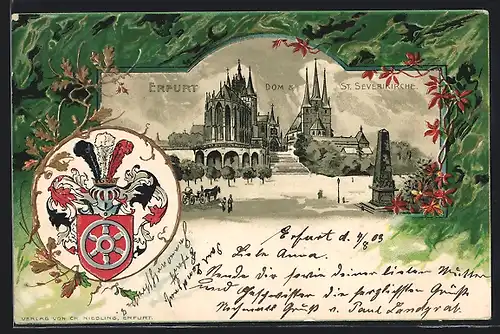 ERFURT DOM & ST. SEVERIKIRCHE.
Erfurt d. 4/8 03
Liebe Anna.
Sende dir sowie deiner lieben Mutter
und Geschwister die herzlichsten Grüße
Nochmals Gruß v. Paul Landgraf.
VERLAG VON CR. NIEDLING, ERFURT.